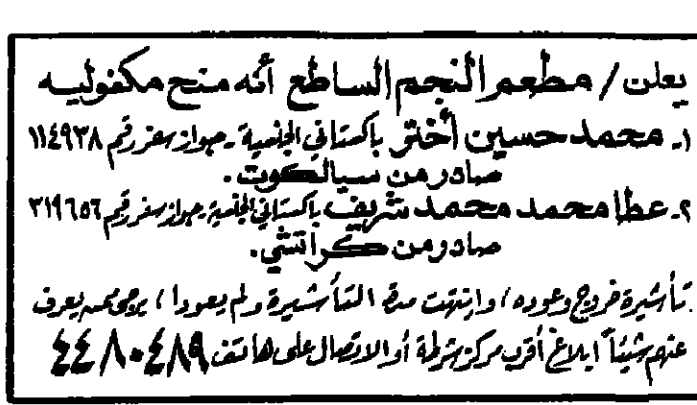 يعلن / مطعم النجم الساطع أنه منح مكفوليه
١ـ محمد حسين أختر باكستاني الجنسية ـ جواز سفر رقم ١١٤٩٣٨
صادر من سيالكوت .
٢ـ عطا محمد محمد شريف باكستاني الجنسية ـ جواز سفر رقم ٣١٩٦٥٦
صادر من كراتشي .
تأشيرة خروج وعوده / وانتهت مدة التأشيرة ولم يعودا / يرجى ممن يعرف
عنهم شيئاً ابلاغ أقرب مركز شرطة أو الاتصال على هاتف ٤٤٨٠٤٨٩